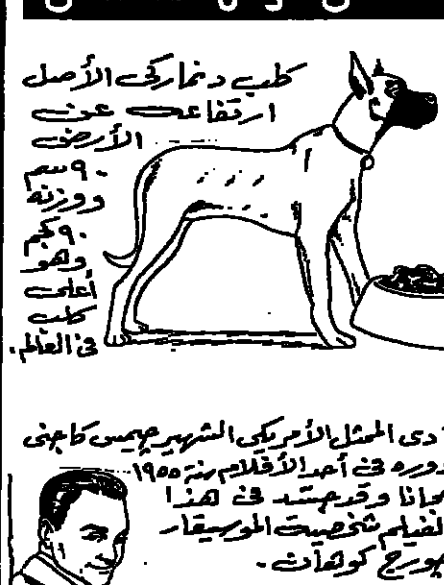 كلب دنماركى الأصل
ارتفاعه عن
الأرض
٩٠ سم
ووزنه
٩٠ كجم
وهو
أعلى
كلب
فى العالم.
أدى الممثل الأمريكى الشهير جيمس كاجنى
دوره فى أحد الأفلام سنة ١٩٥٥
مجانا وقد جسد فى هذا
الفيلم شخصية الموسيقار
جورج كوهان.